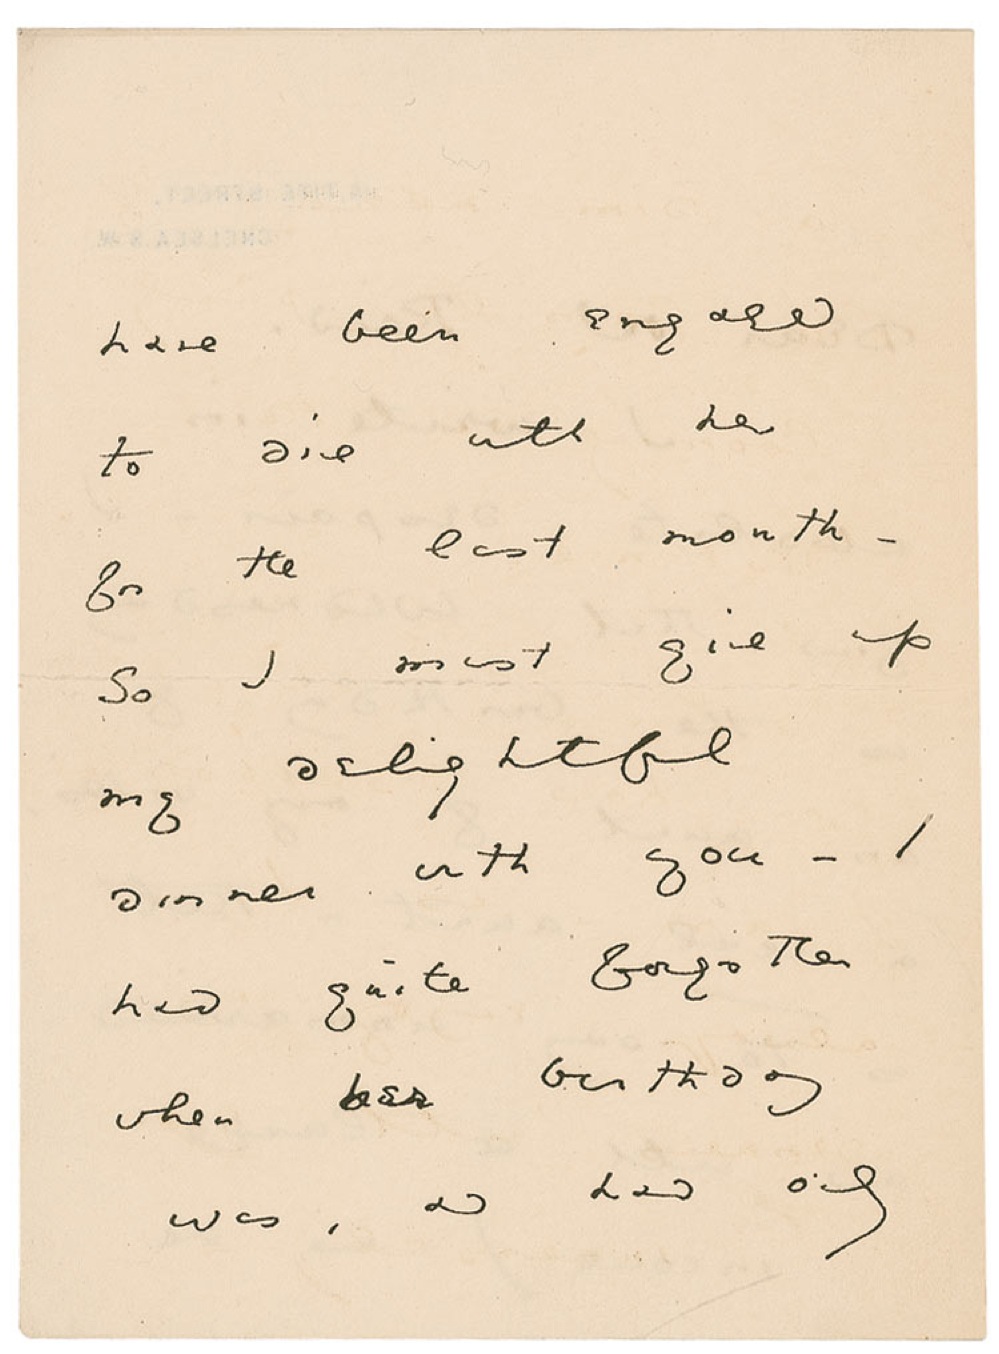 have been engaged
to dine with her
for the last month -
So I must give up
my delightful
dinner with you - I
had quite forgotten
when her birthday
was, and had only